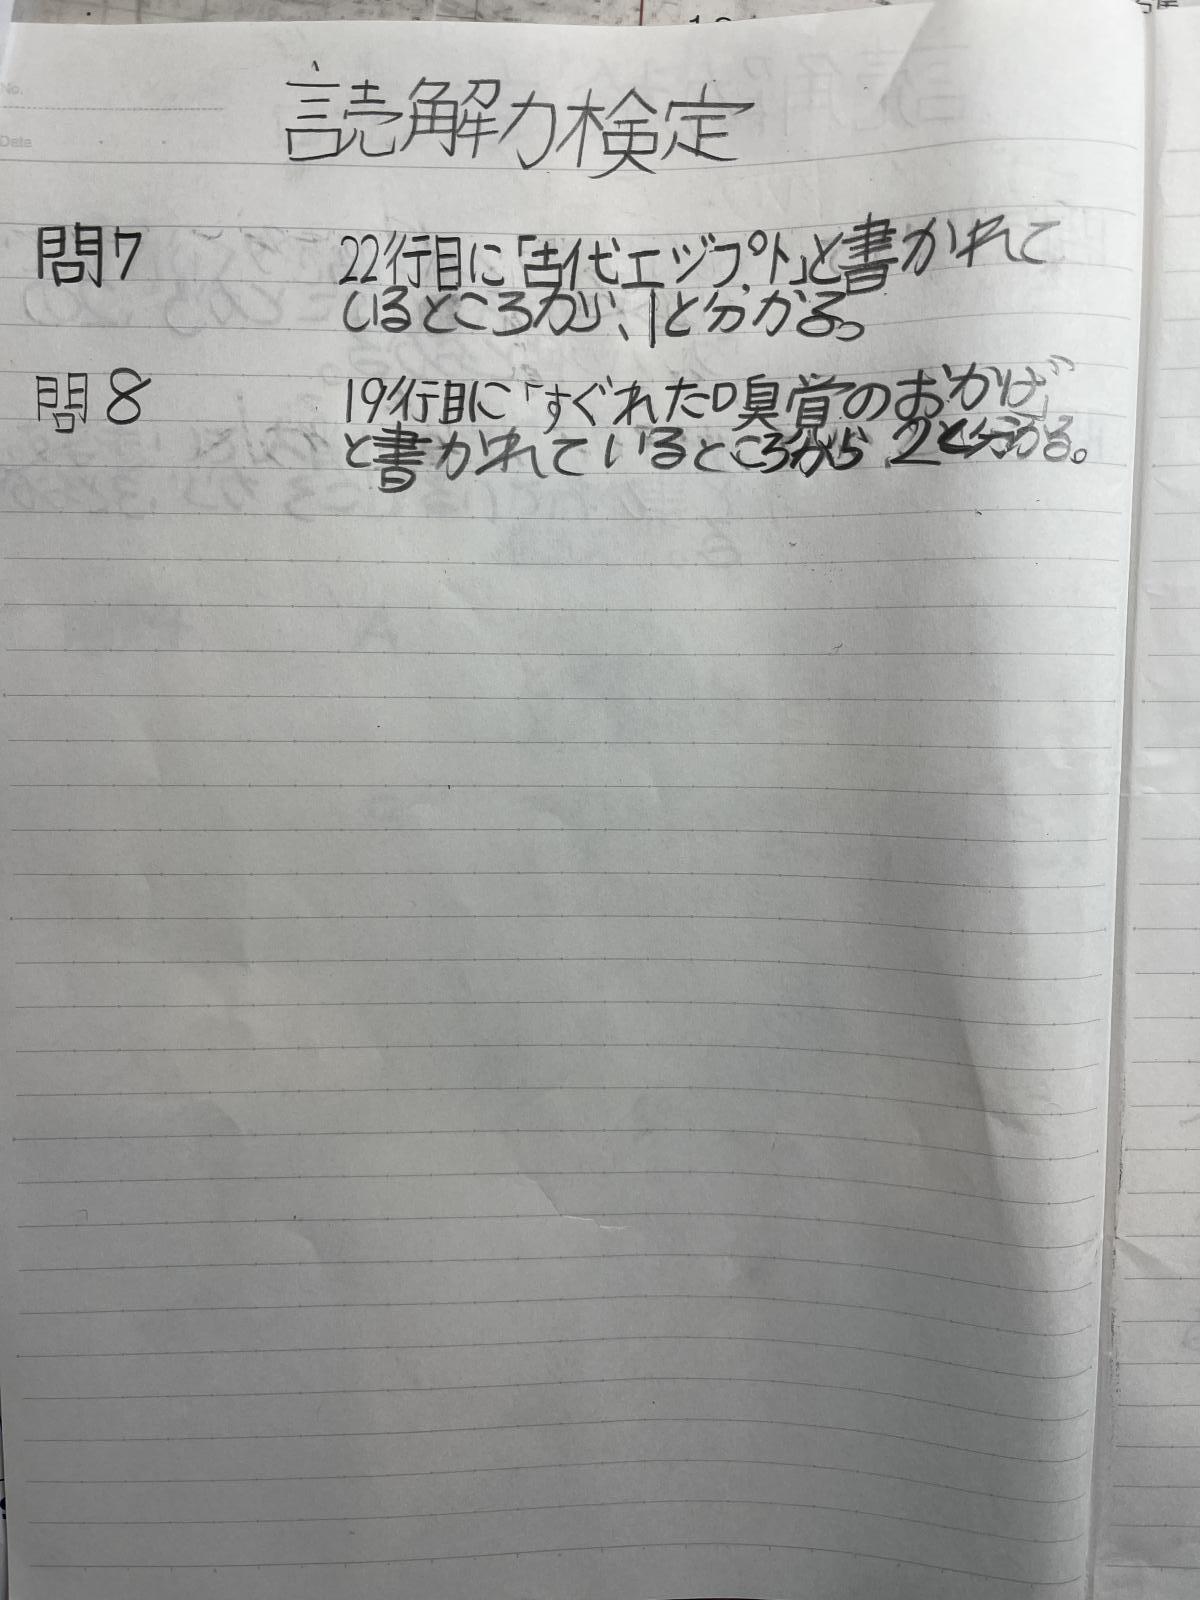 No.
Date
読解力検定
問7 22行目に「古代エジプト」と書かれて
いるところから、1と分かる。
問8 19行目に「すぐれた嗅覚のおかげ」
と書かれているところから、2と分かる。